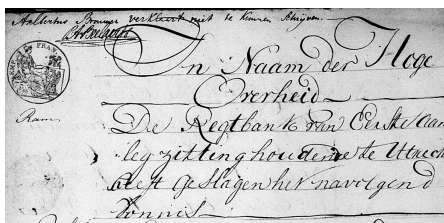 Aalbertus Brouwer verklaart niet te kunnen Schrijven.
In Naam der Hoge
Overheid
De Regtbank van Eerste Aan
leg zitting houdende te Utrecht
heeft geslagen het navolgend
Vonnis